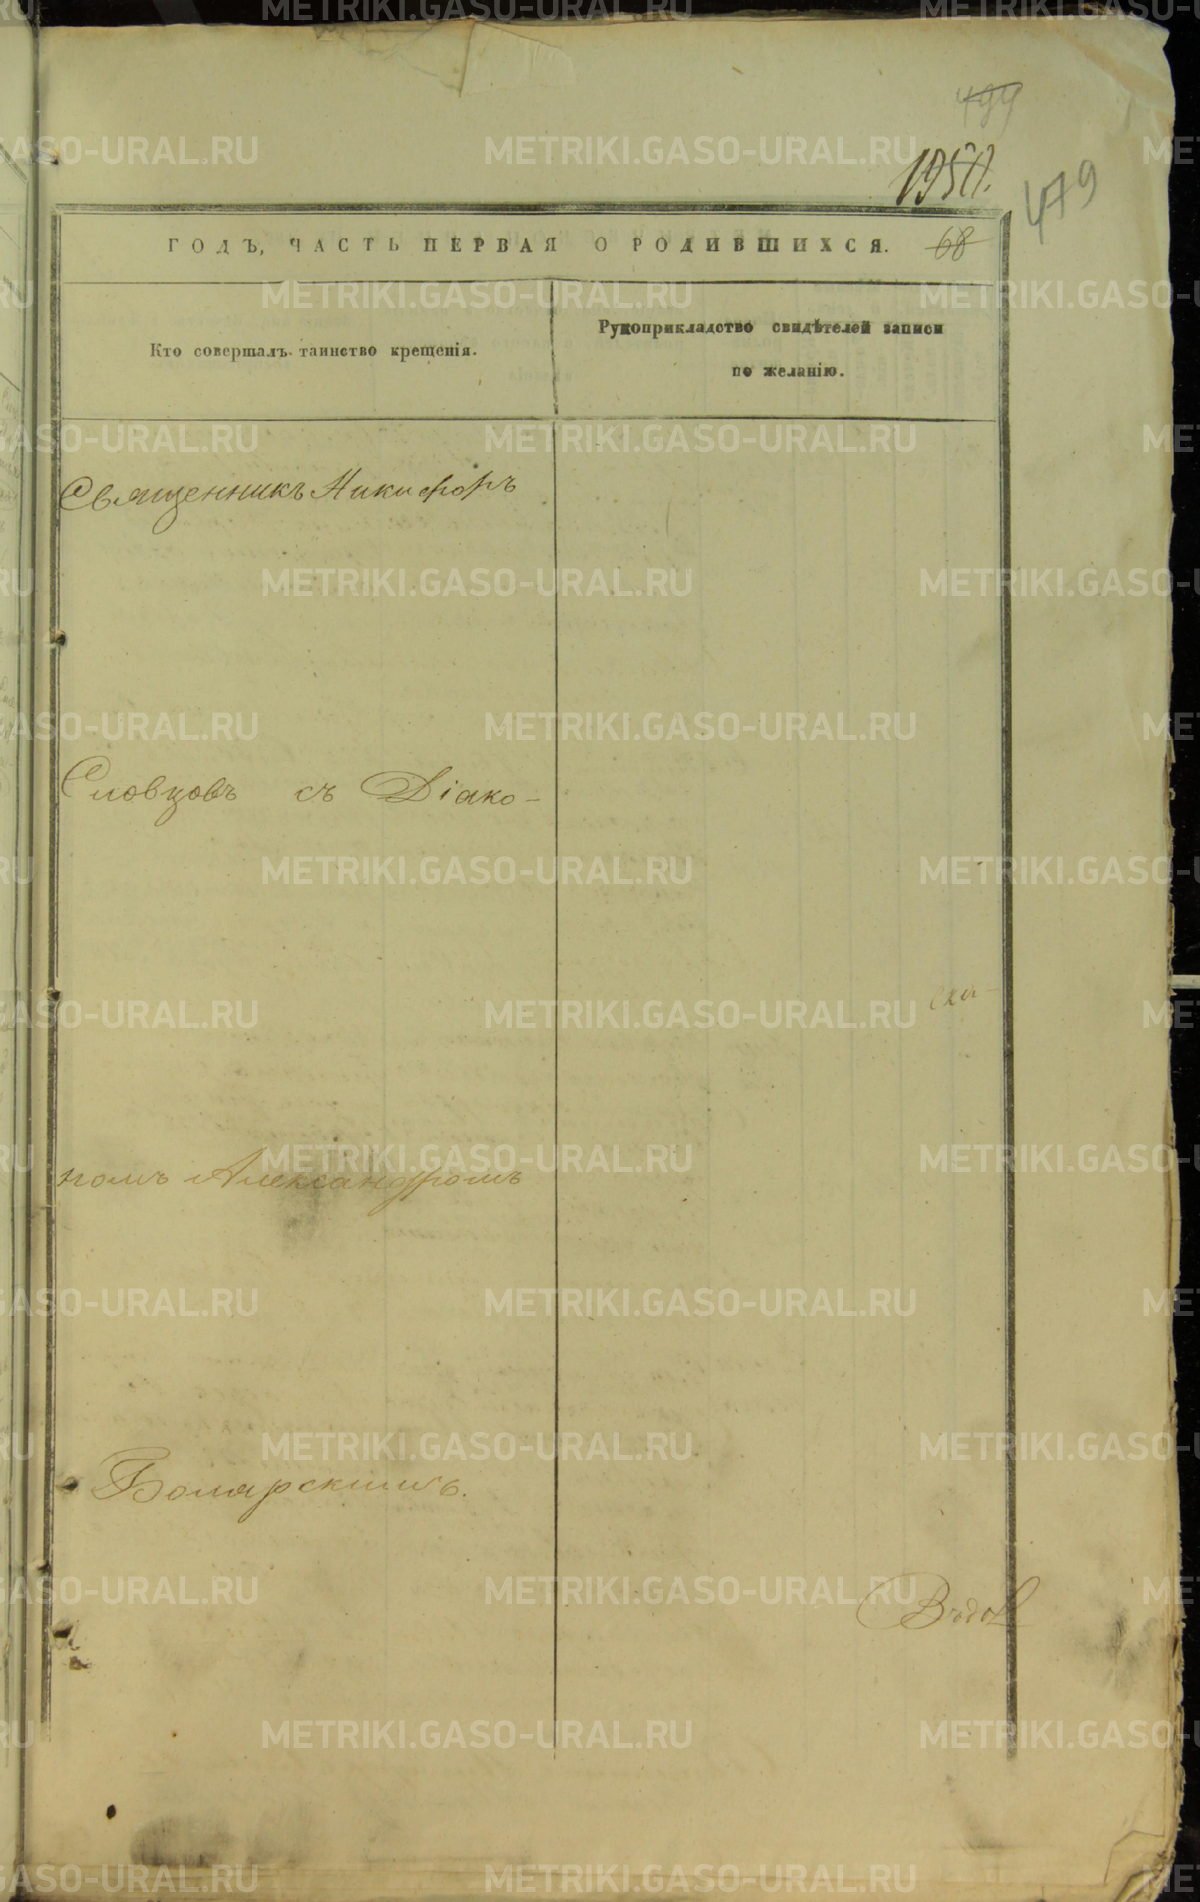 499
1950.
479
ГОДЪ, ЧАСТЬ ПЕРВАЯ О РОДИВШИХСЯ. 68
Кто совершалъ таинство крещенія.
Рукоприкладство свидѣтелей записи
по желанію.
Священникъ Никифоръ
Словцовъ съ Діако-
ска-
номъ Александромъ
Боярскимъ.
METRIKI.GASO-URAL.RU